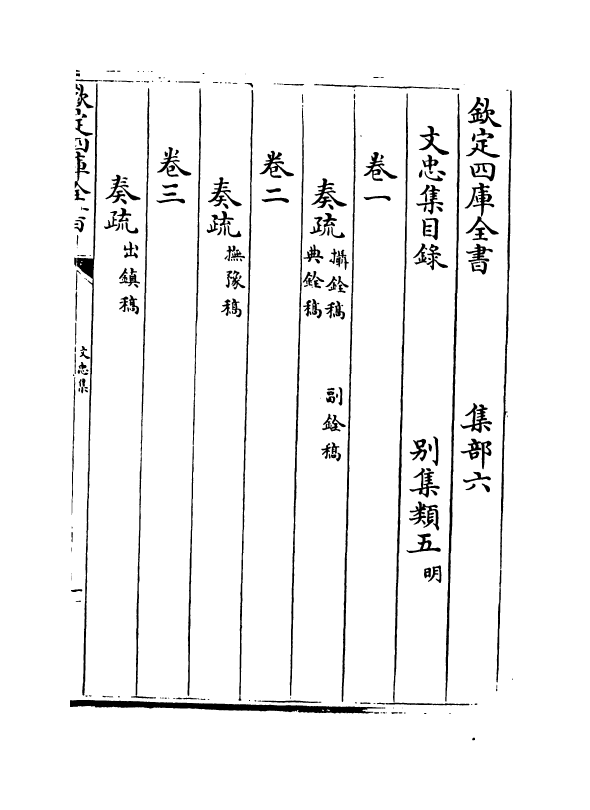 欽定四庫全書　集部六
文忠集目錄　別集類五明
卷一
奏疏攝銓稿　副銓稿
典銓稿
卷二
奏疏撫豫稿
卷三
奏疏出鎮稿
欽定四庫全書
文忠集
一